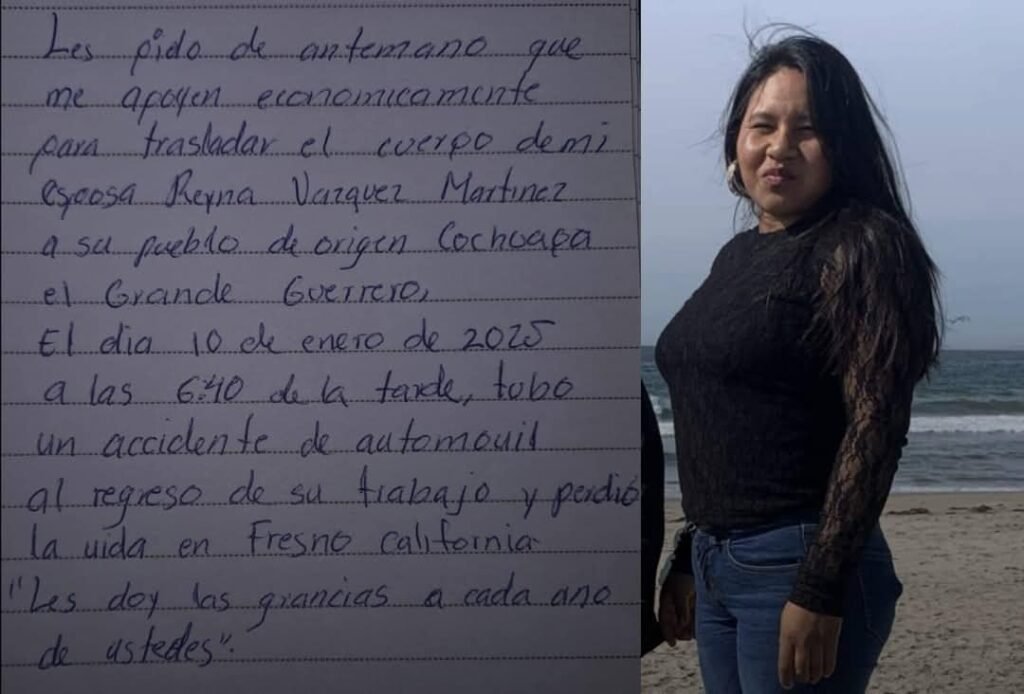 Les pido de antemano que
me apoyen economicamente
para trasladar el cuerpo de mi
esposa Reyna Vazquez Martinez
a su pueblo de origen Cochoapa
el Grande Guerrero,
El dia 10 de enero de 2025
a las 6:40 de la tarde, tubo
un accidente de automovil
al regreso de su trabajo y perdio
la vida en Fresno California
"Les doy las grancias a cada ano
de ustedes".